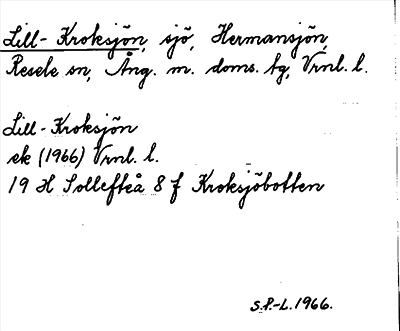 Lill-Kroksjön, sjö, Hermansjön,
Resele sn, Ång. m. doms. tg, Vrnl. l.
Lill-Kroksjön
ek (1966) Vrnl. l.
19 H Sollefteå 8 f Kroksjöbotten
S.P.-L. 1966.